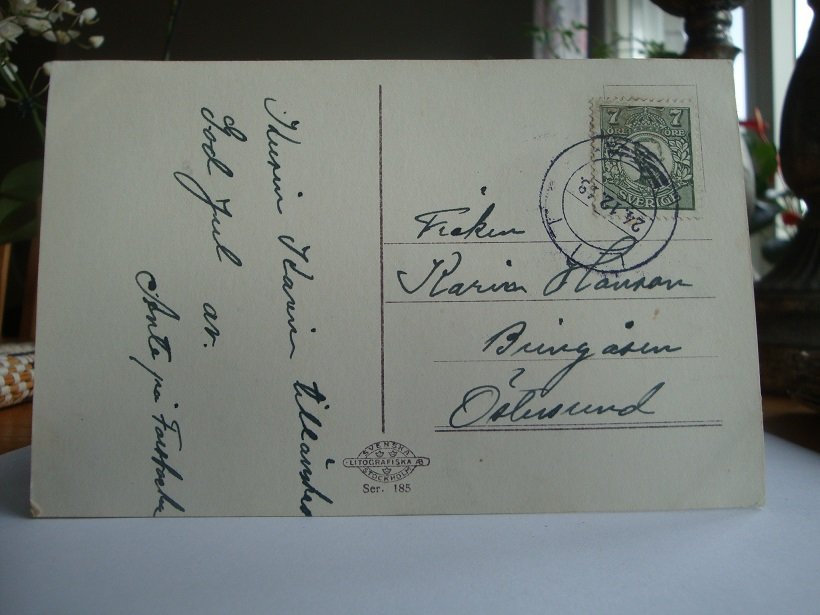 Kusin Karin tillönskes
God Jul av.
Ante på
7 7
ÖRE ÖRE
SVERIGE
24.12
Fröken
Karin Hanson
Bringåsen
Östersund
SVENSKA
LITOGRAFISKA AB
STOCKHOLM
Ser. 185